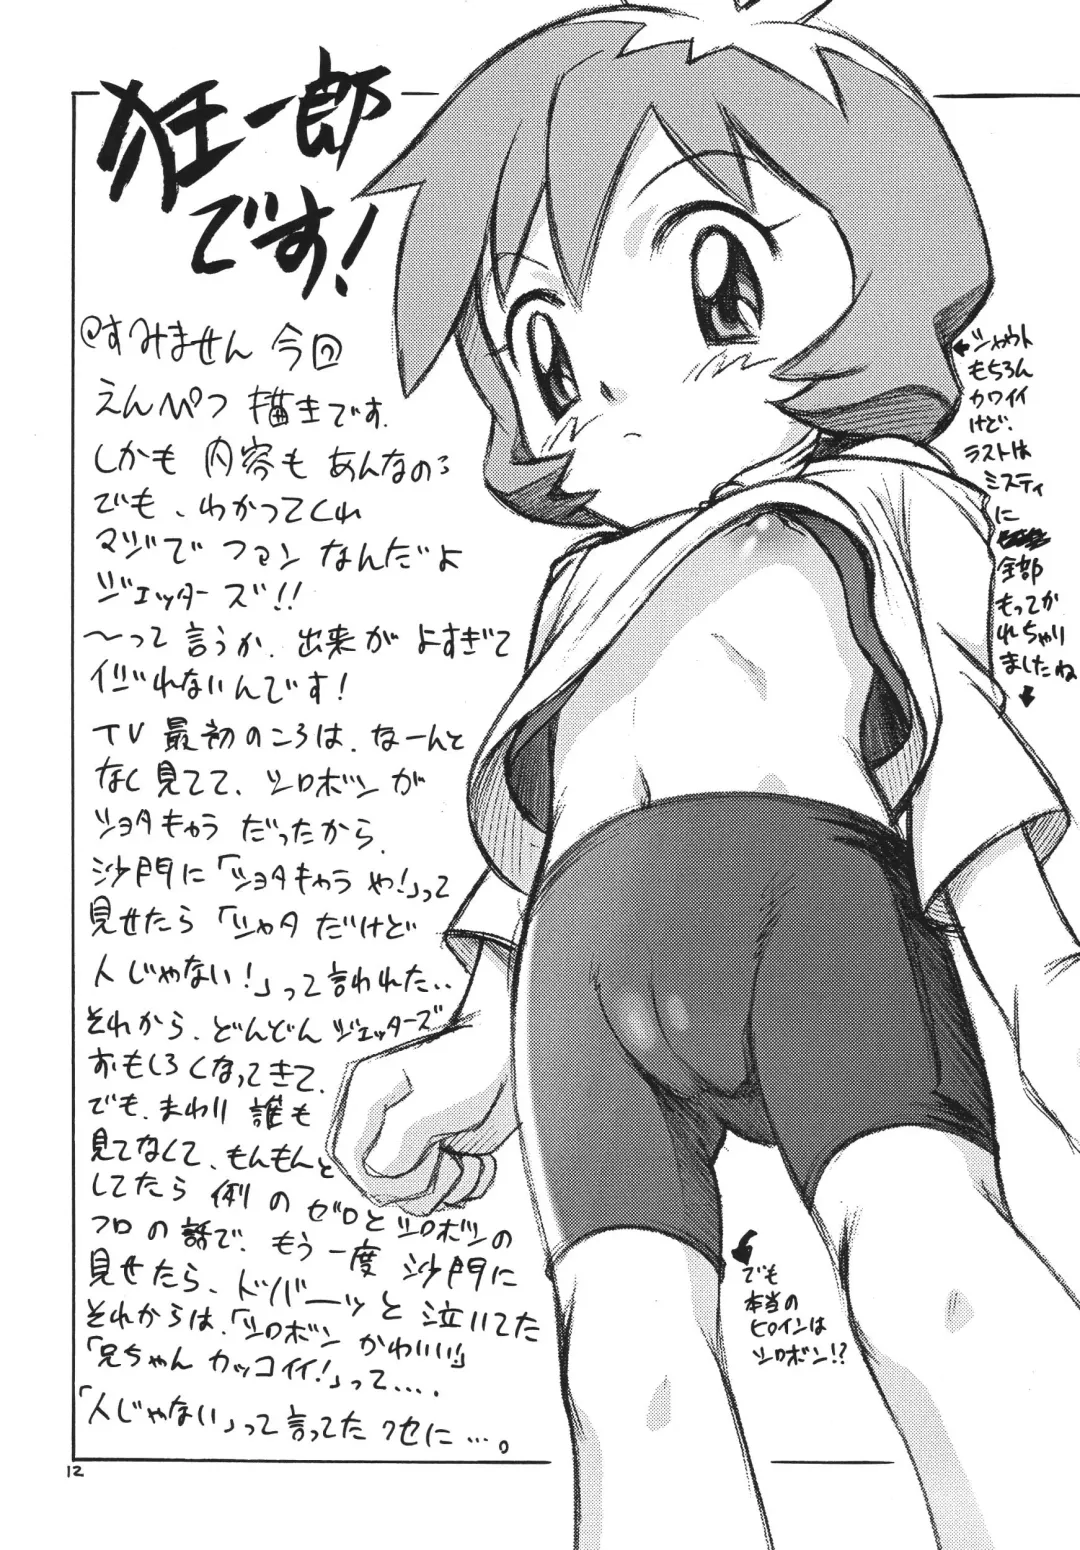 狂一郎
です!
@すみません 今回
えんぴつ描きです。
しかも 内容も あんなの…
でも、わかってくれ
マジで ファン なんだよ
ジェッターズ!!
〜って 言うか、出来が よすぎて
イジれないんです!
TV 最初のころは、なーんと
なく見てて、シロボンが
ショタキャラ だったから、
沙門に「ショタキャラや!」って
見せたら「ショタ だけど
人じゃない!」って言われた..
それから、どんどん ジェッターズ
おもしろくなってきて、
でも、まわり 誰も
見てなくて、もんもんと
してたら 例の ゼロとシロボンの
フロの話で、もう一度 沙門に
見せたら、ドバーッと 泣いてた
それからは、「シロボン かわいい」
「兄ちゃん カッコイイ!」って….
「人じゃない」って言ってた クセに…。
←シャウト
もちろん
カワイイ
けど、
ラストは
ミスティ
に
全部
もってか
れちゃり
ましたね
でも
本当の
ヒロインは
シロボン!?
12